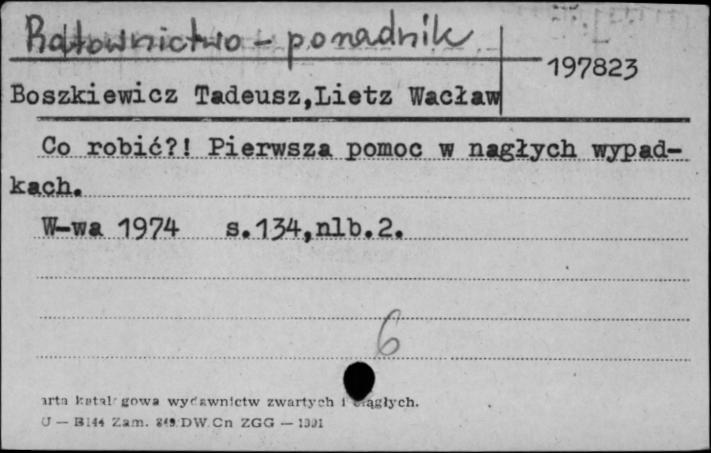 Ratownictwo - poradnik
197823
Boszkiewicz Tadeusz,Lietz Wacław
Co robić?! Pierwsza pomoc w nagłych wypad-
kach.
W-wa 1974 s.134,nlb.2.
6
arta katalogowa wydawnictw zwartych i ciągłych.
U — B144 Zam. 849/DW.Cn ZGG — 1391